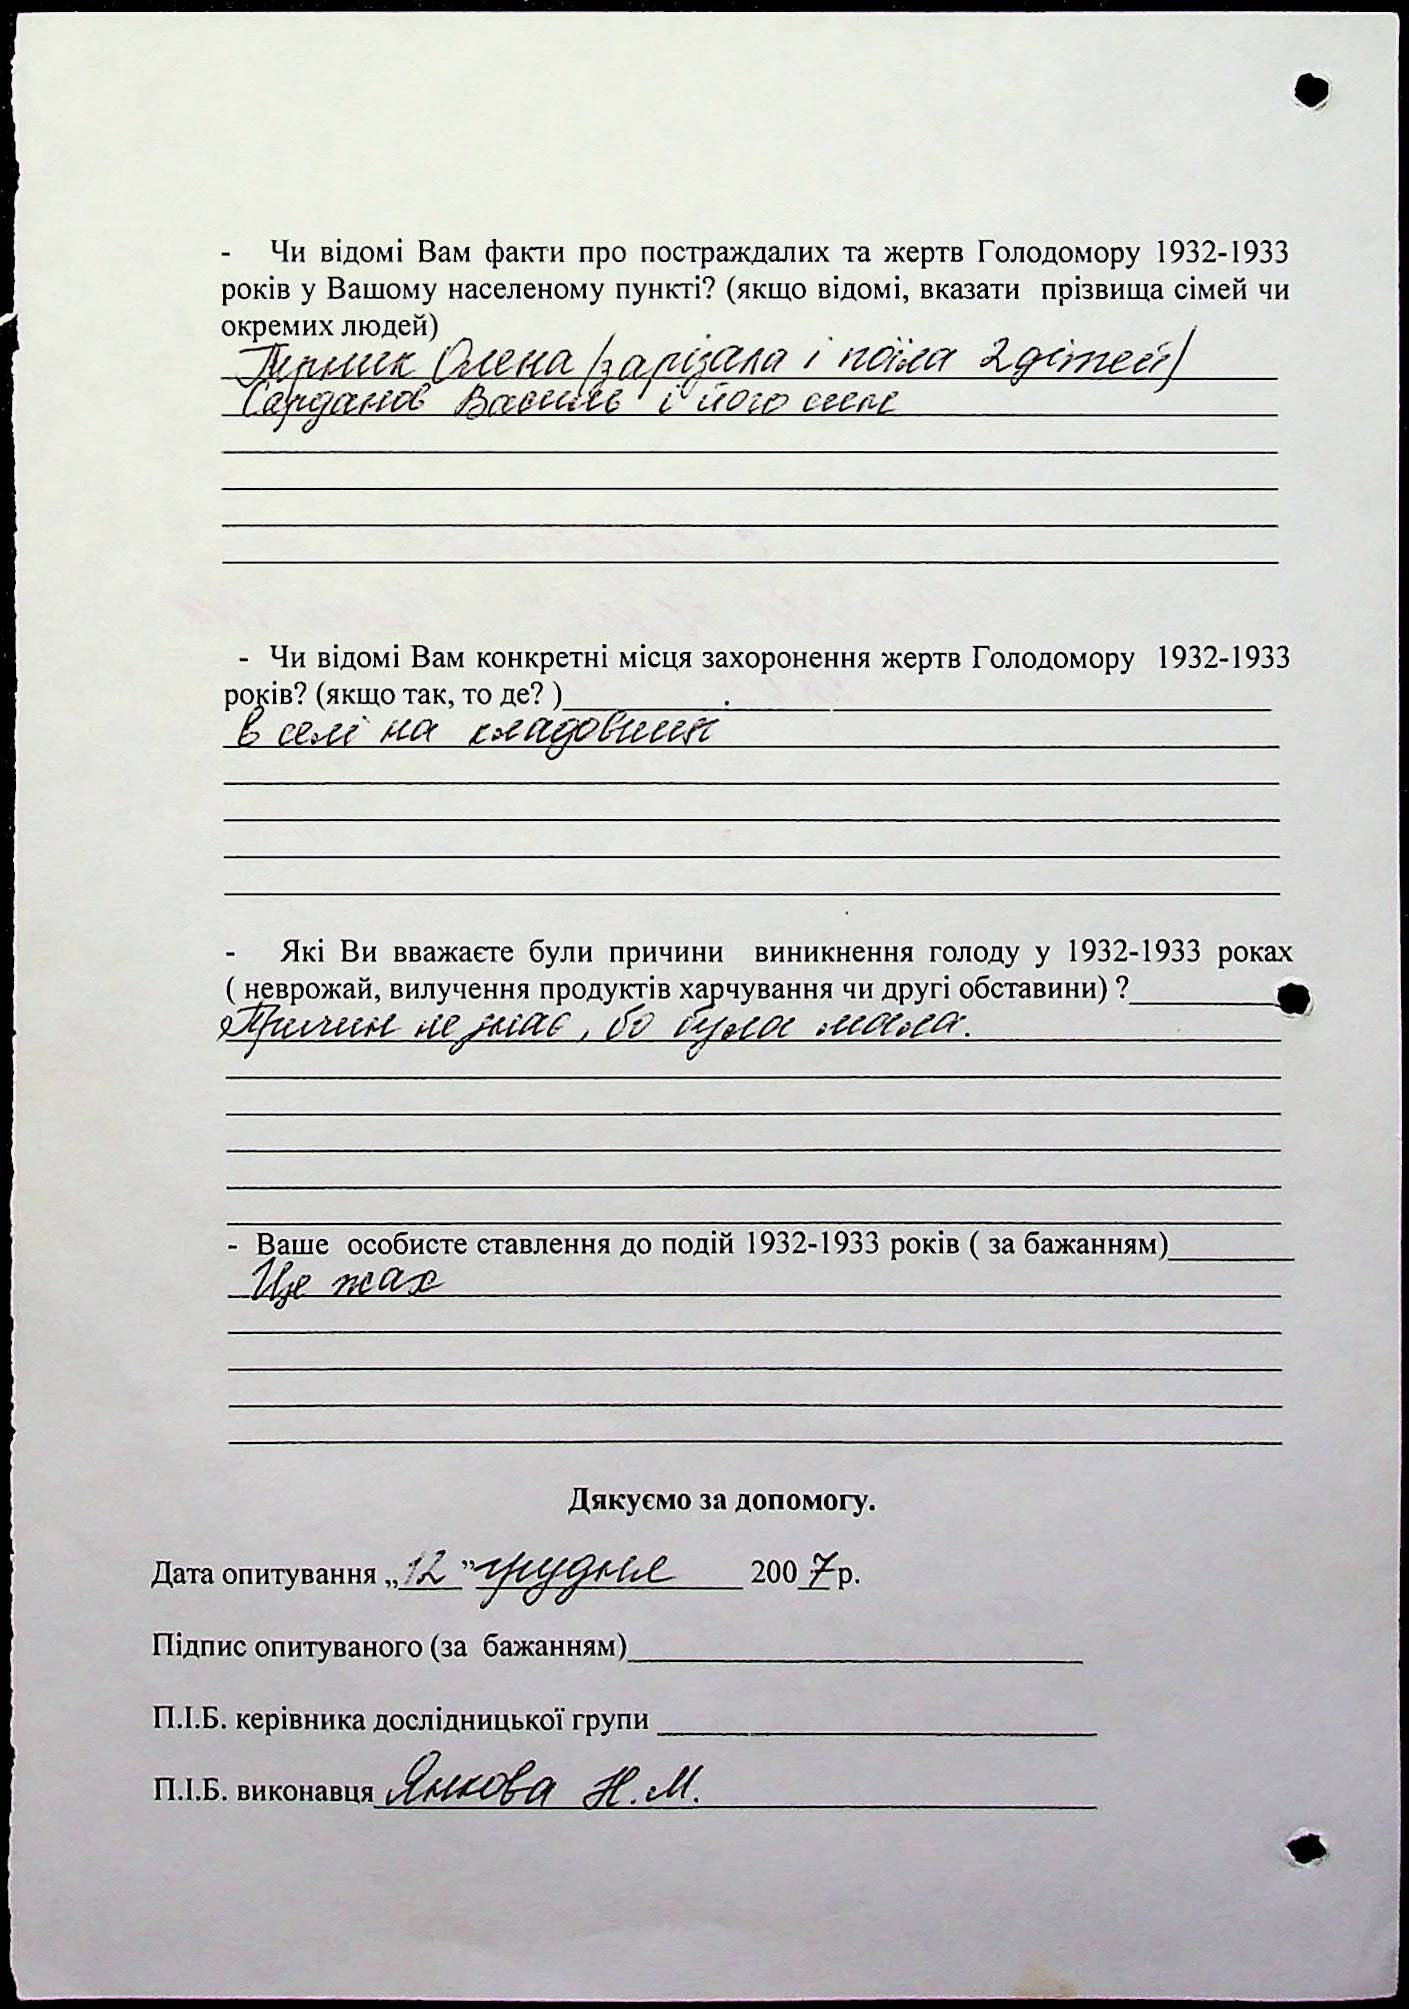 - Чи відомі Вам факти про постраждалих та жертв Голодомору 1932-1933
років у Вашому населеному пункті? (якщо відомі, вказати прізвища сімей чи
окремих людей)
Олена (зарізала і поїла 2 дітей)
Сарданов Василь і його
- Чи відомі Вам конкретні місця захоронення жертв Голодомору 1932-1933
років? (якщо так, то де? )
в селі на кладовищі
- Які Ви вважаєте були причини виникнення голоду у 1932-1933 роках
( неврожай, вилучення продуктів харчування чи другі обставини) ?
Причин не знає, бо була мала.
- Ваше особисте ставлення до подій 1932-1933 років ( за бажанням)
Це жах
Дякуємо за допомогу.
Дата опитування „12 ” грудня 2007 р.
Підпис опитуваного (за бажанням)
П.І.Б. керівника дослідницької групи
П.І.Б. виконавця Янкова Н.М.